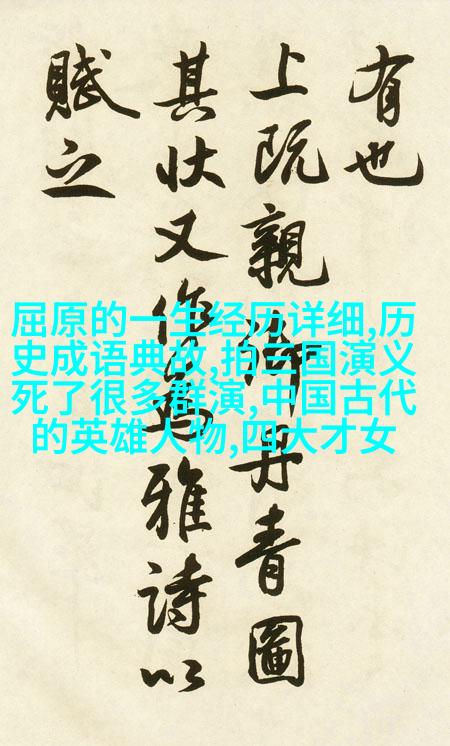 有也
上既親御丹青圖
其状又作為雅詩以
賦之
屈原的一生经历详细,历
史成语典故,拍三国演义
死了很多群演,中国古代
的英雄人物,四大才女